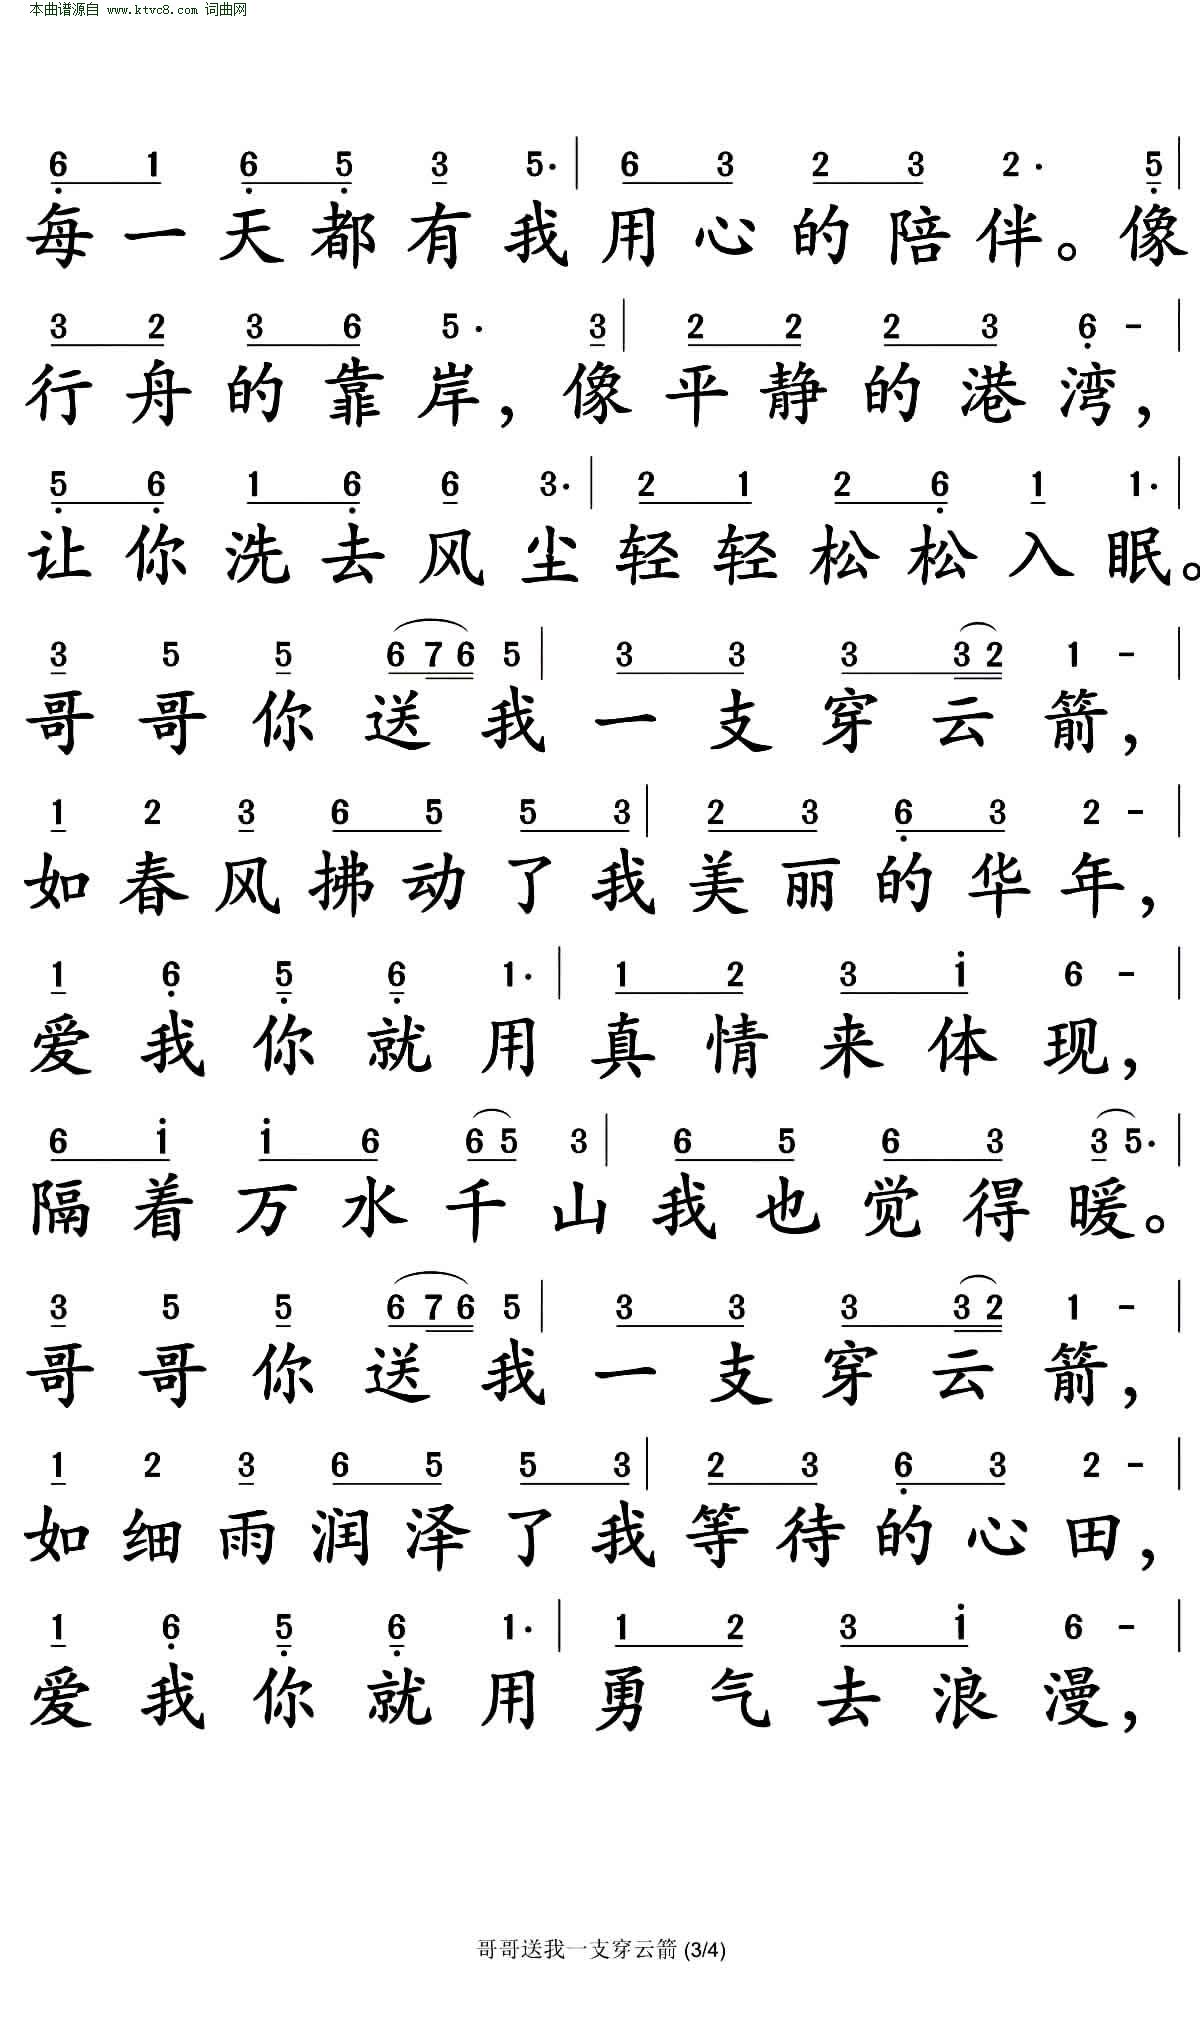 本曲谱源自 www.ktvc8.com 词曲网
6 1 6 5 3 5· | 6 3 2 3 2· 5 |
每一天都有我用心的陪伴。像
3 2 3 6 5· 3 | 2 2 2 3 6 - |
行舟的靠岸，像平静的港湾，
5 6 1 6 6 3· | 2 1 2 6 1 1· |
让你洗去风尘轻轻松松入眠。
3 5 5 6 7 6 5 | 3 3 3 3 2 1 - |
哥哥你送我一支穿云箭，
1 2 3 6 5 5 3 | 2 3 6 3 2 - |
如春风拂动了我美丽的华年，
1 6 5 6 1· | 1 2 3 i 6 - |
爱我你就用真情来体现，
6 i i 6 6 5 3 | 6 5 6 3 3 5· |
隔着万水千山我也觉得暖。
3 5 5 6 7 6 5 | 3 3 3 3 2 1 - |
哥哥你送我一支穿云箭，
1 2 3 6 5 5 3 | 2 3 6 3 2 - |
如细雨润泽了我等待的心田，
1 6 5 6 1· | 1 2 3 i 6 - |
爱我你就用勇气去浪漫，
哥哥送我一支穿云箭 (3/4)